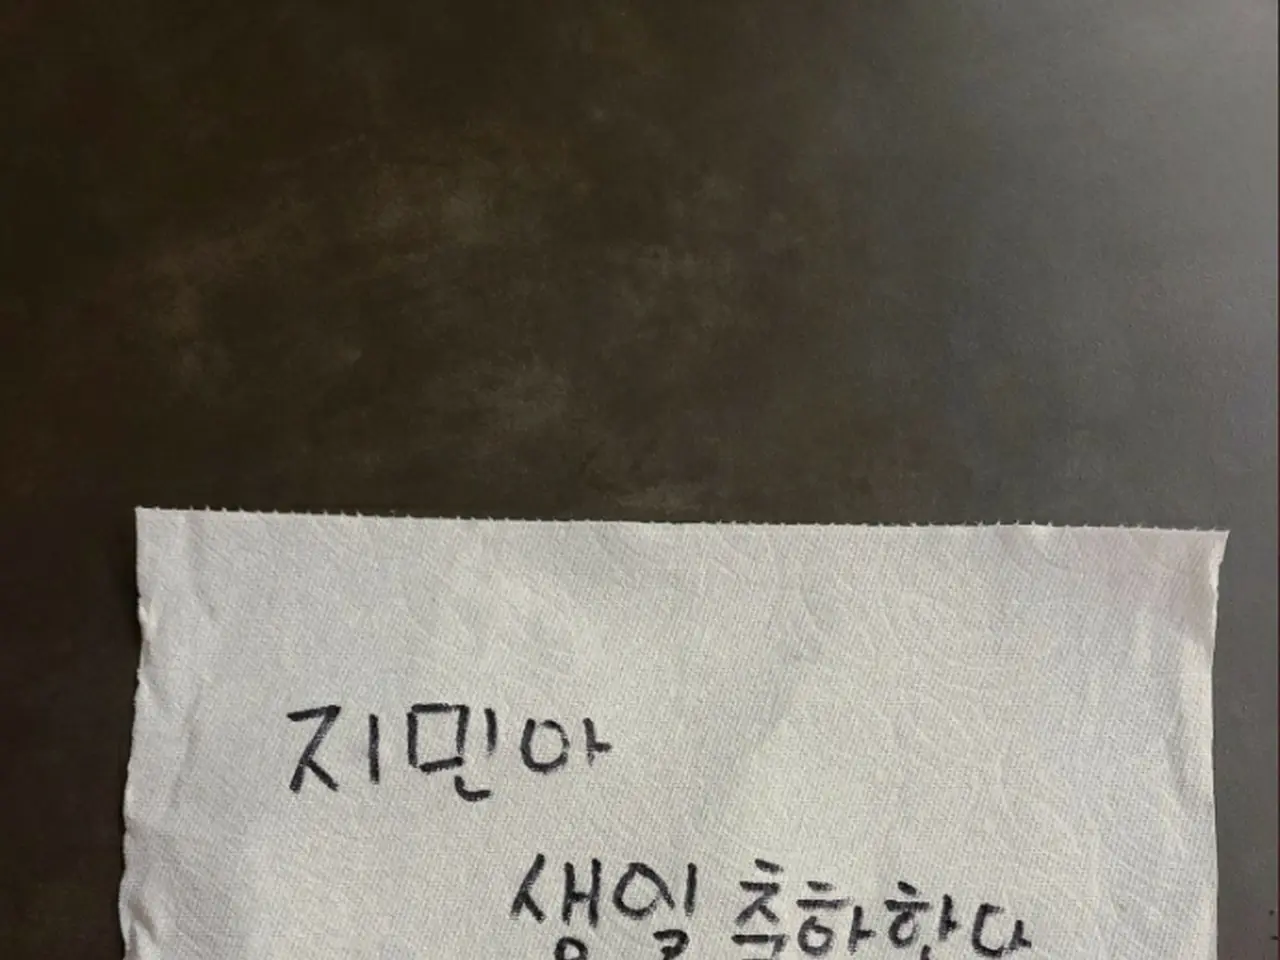 지민아
생일 축하한다